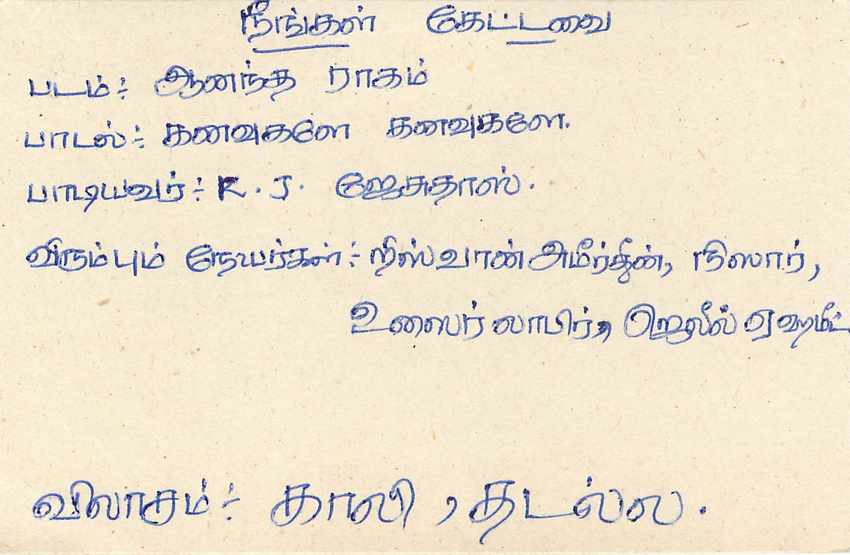 நீங்கள் கேட்டவை
படம் :- ஆனந்த ராகம்
பாடல் :- கனவுகளே கனவுகளே.
பாடியவர் :- K. J. ஜேசுதாஸ்.
விரும்பும் நேயர்கள் :- றிஸ்வான் அமீர்தீன், நிஸார்,
உஸைர் லாபிர், ஜெலீல் ஏ ஹமீட்
விலாசம் :- காலி , தடல்ல .